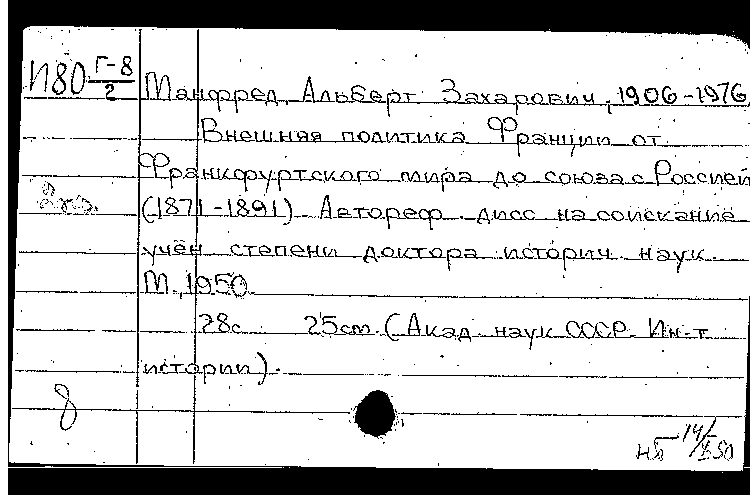 И80 Г-8/2
Манфред, Альберт Захарович, 1906-1976.
Внешняя политика Франции от
Франкфуртского мира до союза с Россией
2 кз. (1871-1891) Автореф. дисс на соискание
учён степени доктора историч. наук.
М., 1950.
28с 25см. (Акад. наук СССР. Ин-т
истории).
8
нб